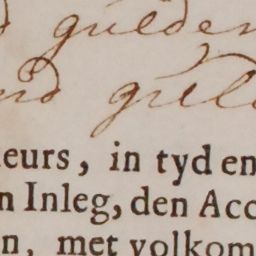 gulden
gul
eurs, in tyd en
n Inleg, den Acc
n, met volkom